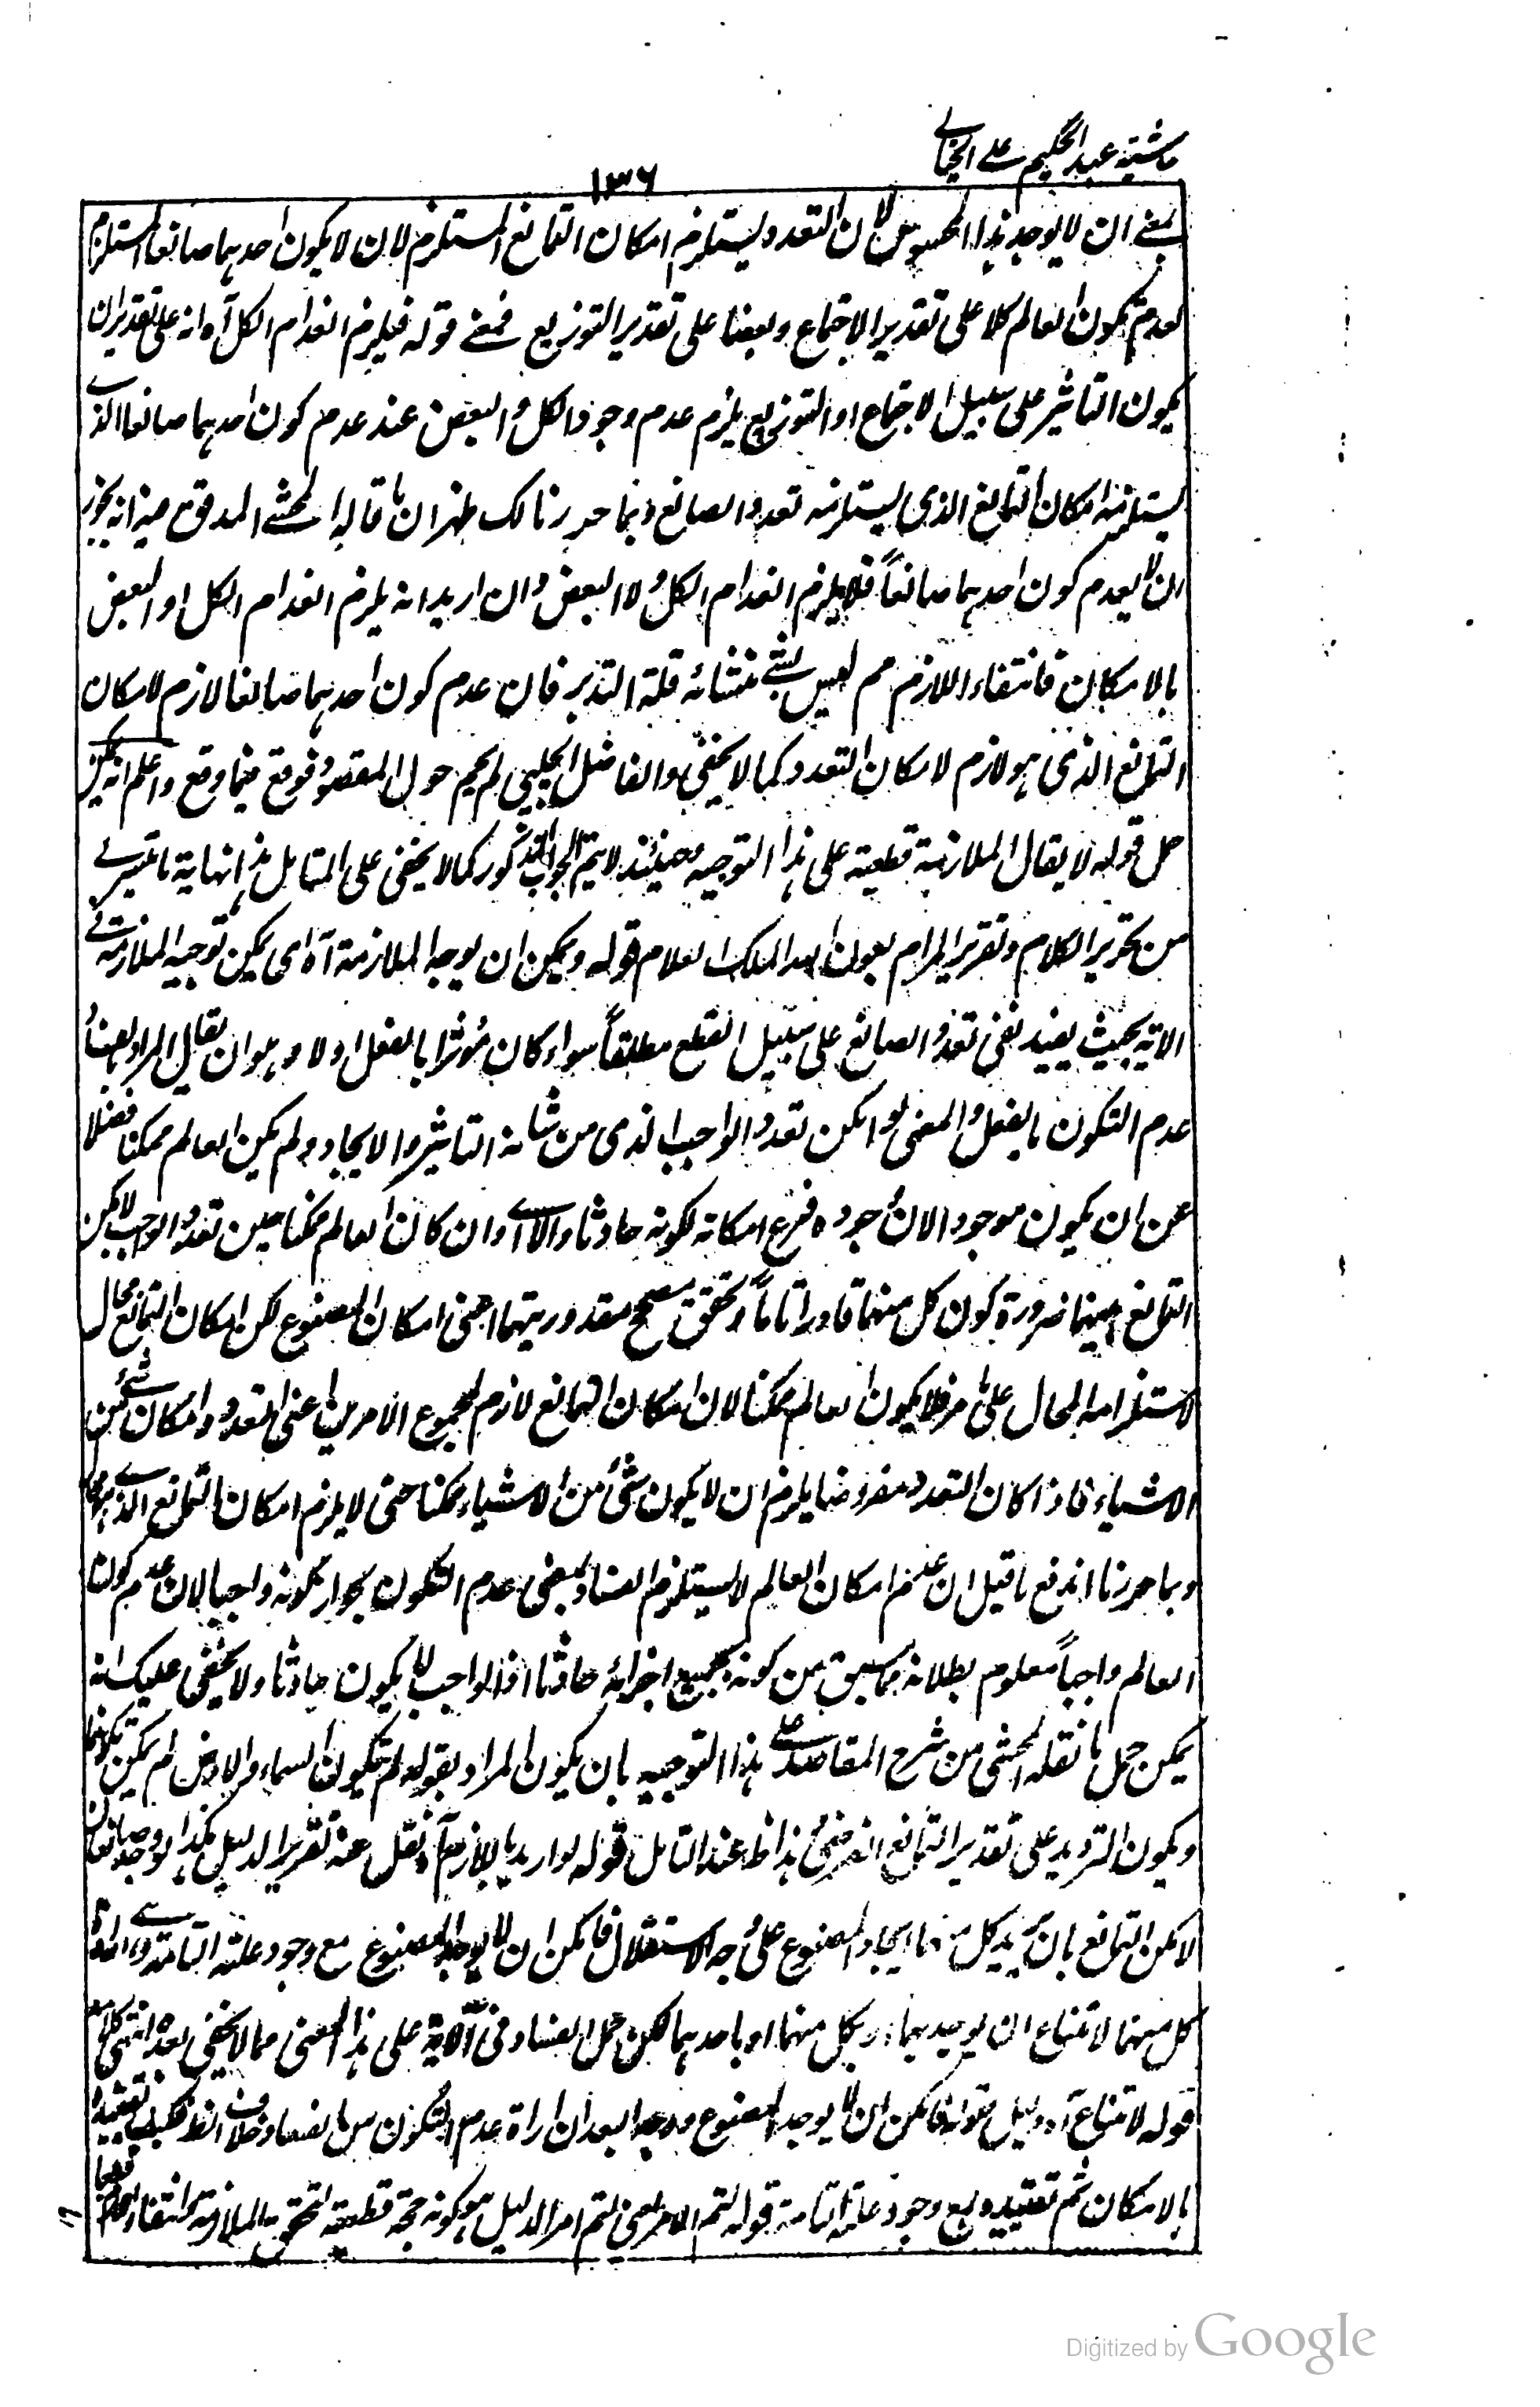 حاشیة عبد الحکیم علی الخیالی
۱۳۶
بمعنی ان لا یوجد هذا المحسوس لان التعدد یستلزم امکان التمانع المستلزم لان لا یکون احدهما صانعا المستلزم
لعدم تکون العالم کلا علی تقدیر الاجتماع وبعضا علی تقدیر التوزیع فمعنی قوله فیلزم انعدام الکل آه انه علی تقدیر ان
یکون التاثیر علی سبیل الاجتماع او التوزیع یلزم عدم وجود الکل او البعض عند عدم کون احدهما صانعا الذی
یستلزمه امکان التمانع الذی یستلزمه تعدد الصانع وبما حررنا لک ظهر ان ما قاله المحشی المدقق من انه یجوز
ان لا یعدم کون احدهما صانعاً فلا یلزم انعدام الکل ولا البعض وان ارید انه یلزم انعدام الکل او البعض
بالامکان فانتفاء اللازم مم لیس بشئ منشائه قلة التدبر فان عدم کون احدهما صانعا لازم لامکان
التمانع الذی هو لازم لامکان التعدد کما لا یخفی والفاضل الجلبی لم یحم حول المقصود فوقع فیما وقع واعلم انه یمکن
حمل قوله لا یقال الملازمة قطعیة علی هذا التوجیه وحینئذ لا یتم الجواب المذکور کما لا یخفی علی المتامل هذا نهایة ما تیسر لی
من تحریر الکلام وتقریر المرام بعون الله الملک العلام قوله ویمکن ان یوجه الملازمة آه ای یمکن توجیه الملازمة فی
الایة بحیث یفید نفی تعدد الصانع علی سبیل القطع مطلقاً سواء کان مؤثرا بالفعل اولا وهو ان یقال المراد بالفساد
عدم التکون بالفعل والمعنی لو امکن تعدد الواجب الذی من شانه التاثیر والایجاد لم یکن العالم ممکنا فضلا
عن ان یکون موجودا لان وجوده فرع امکانه لکونه حادثا والا ای وان کان العالم ممکنا حین تعدد الواجب لامکن
التمانع بینهما ضرورة کون کل منهما قادرا تاماً وتحقق مصحح مقدوریتهما اعنی امکان المصنوع لکن امکان التمانع محال
لاستلزامه المحال علی ما مر فلا یکون العالم ممکنا لان امکان التمانع لازم لمجموع الامرین اعنی التعدد وامکان شئ من
الاشیاء فاذا کان التعدد مفروضا یلزم ان لا یکون شئ من الاشیاء ممکنا حتی لا یلزم امکان التمانع الذی هو محال
وبما حررنا اندفع ما قیل ان عدم امکان العالم لا یستلزم الفساد بمعنی عدم التکون بجواز کونه واجبا لان عدم کون
العالم واجباً معلوم بطلانه مما سبق من کونه بجمیع اجزائه حادثا اذ الواجب لا یکون حادثا ولا یخفی علیک انه
یمکن حمل ما نقله المحشی من شرح المقاصد علی هذا التوجیه بان یکون المراد بقوله لم تکون السماء والارض لم یمکن تکونهما
ویکون التردید علی تقدیر التمانع الفرضی هذا ظ عند التامل قوله لو ارید باللازم آه نقل عنه تقریر الدلیل هکذا لو وجد صانعان
لامکن التمانع بان یرید کل منهما ایجاد المصنوع علی وجه الاستقلال فامکن ان لا یوجد المصنوع مع وجود علته التامة وهی ارادة
کل منهما لامتناع ان یوجد بهما او بکل منهما او باحدهما لکن حمل الفساد فی الآیة علی هذا المعنی مما لا یخفی بعده انتهی کلامه
قوله لامتناع آه دلیل لقوله فامکن ان لا یوجد المصنوع ووجه البعد ان ارادة عدم التکون من الفساد خلاف الظ فکیف تقییده
بالامکان ثم تقییده بمع وجود علته التامة قوله لتم الامر یعنی لتم امر الدلیل وکونه حجة قطعیة لتحقق الملازمة وانتفاء اللازم قطعا